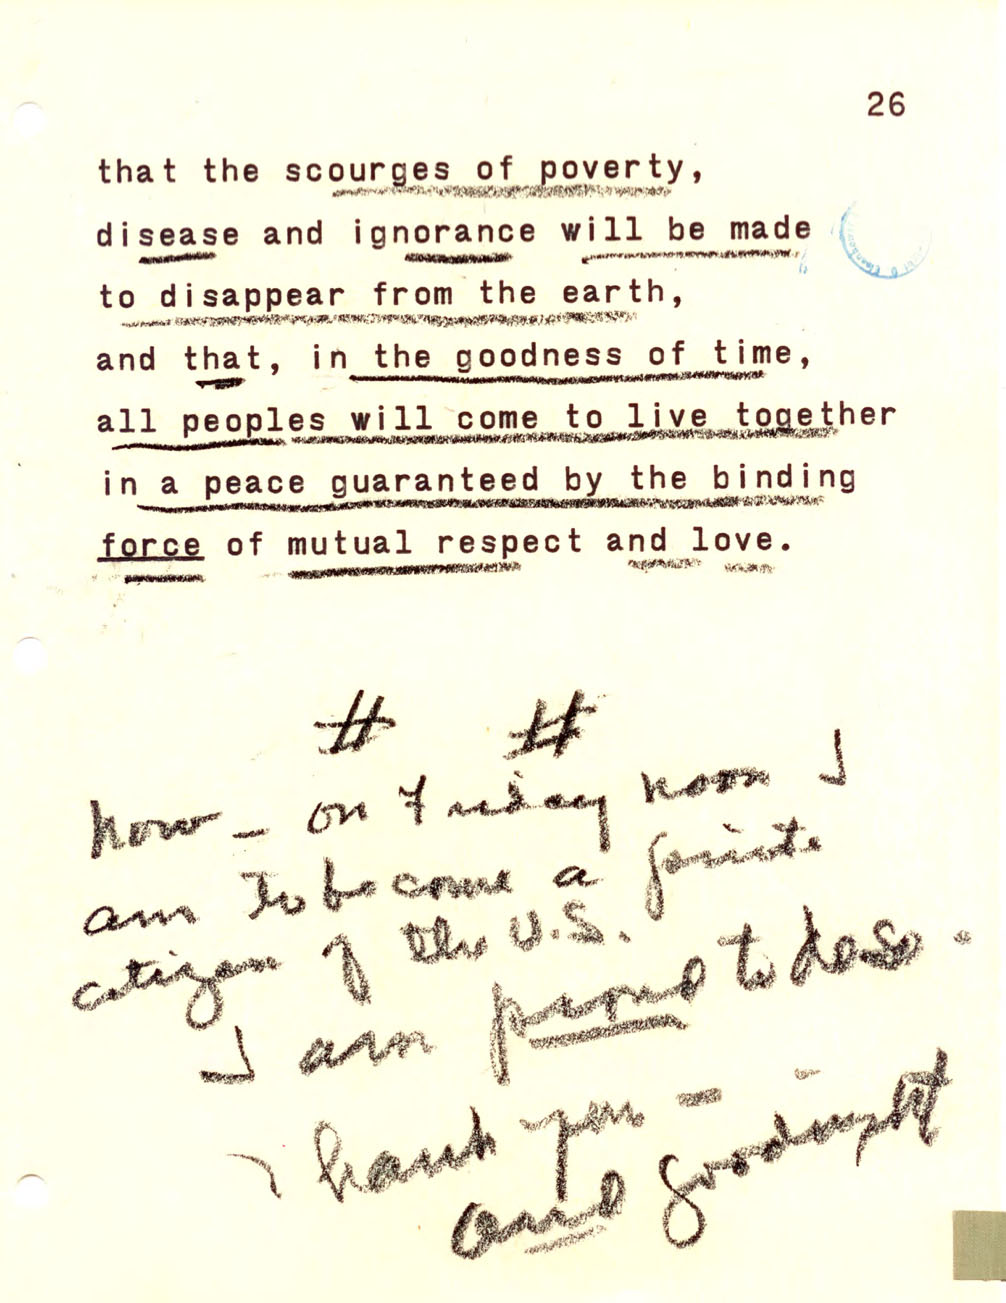 26
that the scourges of poverty,
disease and ignorance will be made
to disappear from the earth,
and that, in the goodness of time,
all peoples will come to live together
in a peace guaranteed by the binding
force of mutual respect and love.
# #
Now - on Friday noon I
am to become a private
citizen of the U.S.
I am proud to do so.
Thank you -
and goodnight